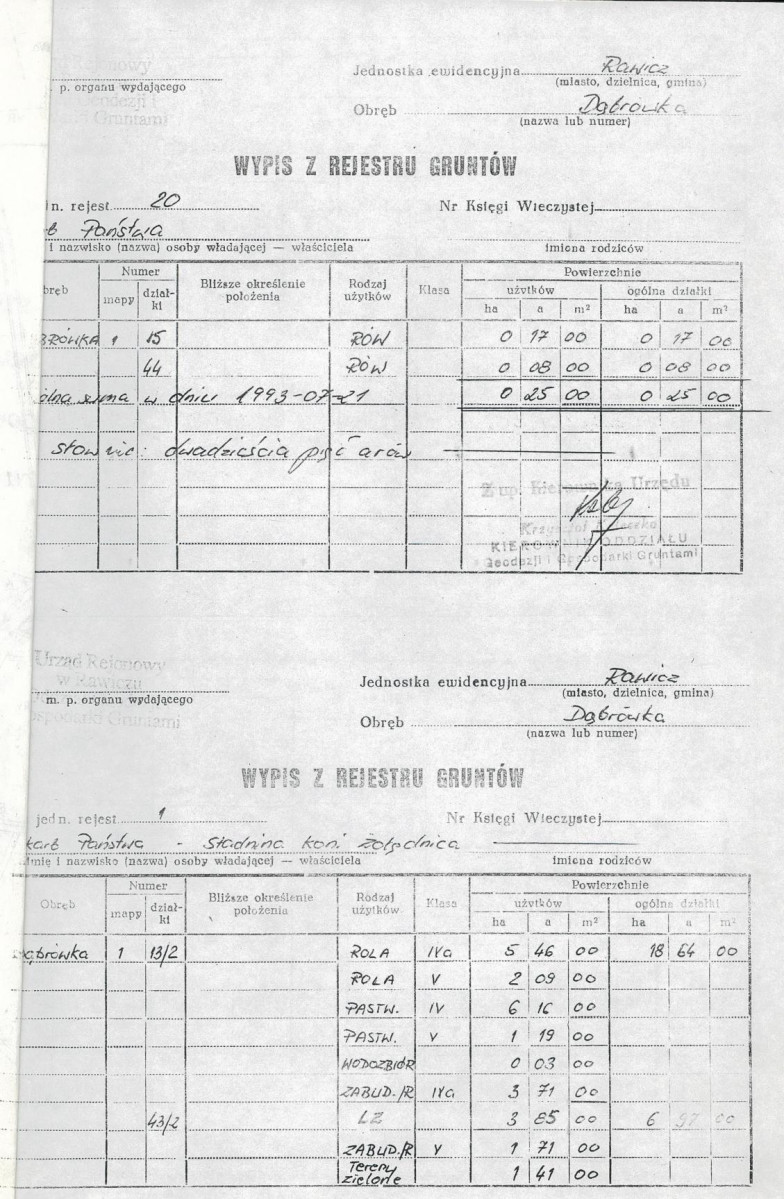 Jednostka ewidencyjna Rawicz
p. organu wydającego (miasto, dzielnica, gmina)
Obręb Dąbrówka
(nazwa lub numer)
WYPIS Z REJESTRU GRUNTÓW
n. rejest. 20 Nr Księgi Wieczystej
b Państwa
i nazwisko (nazwa) osoby władającej — właściciela imiona rodziców
Numer Powierzchnie
bręb mapy dział-ki Bliższe określenie położenia Rodzaj użytków Klasa użytków ogólna działki
ha a m² ha a m²
BRÓWKA 1 15 RÓW 0 17 00 0 17 00
44 RÓW 0 08 00 0 08 00
ólna suma w dniu 1993-07-21 0 25 00 0 25 00
słownie: dwadzieścia pięć arów
Z up. Kierownika Urzędu
Krzysztof
KIEROWNIK ODDZIAŁU
Geodezji i Gospodarki Gruntami
Urząd Rejonowy
w Rawiczu
Jednostka ewidencyjna Rawicz
m. p. organu wydającego (miasto, dzielnica, gmina)
ospodarki Gruntami
Obręb Dąbrówka
(nazwa lub numer)
WYPIS Z REJESTRU GRUNTÓW
jedn. rejest. 1 Nr Księgi Wieczystej
karb Państwa - Stadnina koni Żołędnica
imię i nazwisko (nazwa) osoby władającej — właściciela imiona rodziców
Numer Powierzchnie
Obręb mapy dział-ki Bliższe określenie położenia Rodzaj użytków Klasa użytków ogólna działki
ha a m² ha a m²
Dąbrówka 1 13/2 ROLA IVa 5 46 00 18 64 00
ROLA V 2 09 00
PASTW. IV 6 16 00
PASTW. V 1 19 00
WODOZBIÓR 0 03 00
ZABUD./R IVa 3 71 00
43/2 LZ 3 85 00 6 97 00
ZABUD./R V 1 71 00
Tereny zielone 1 41 00